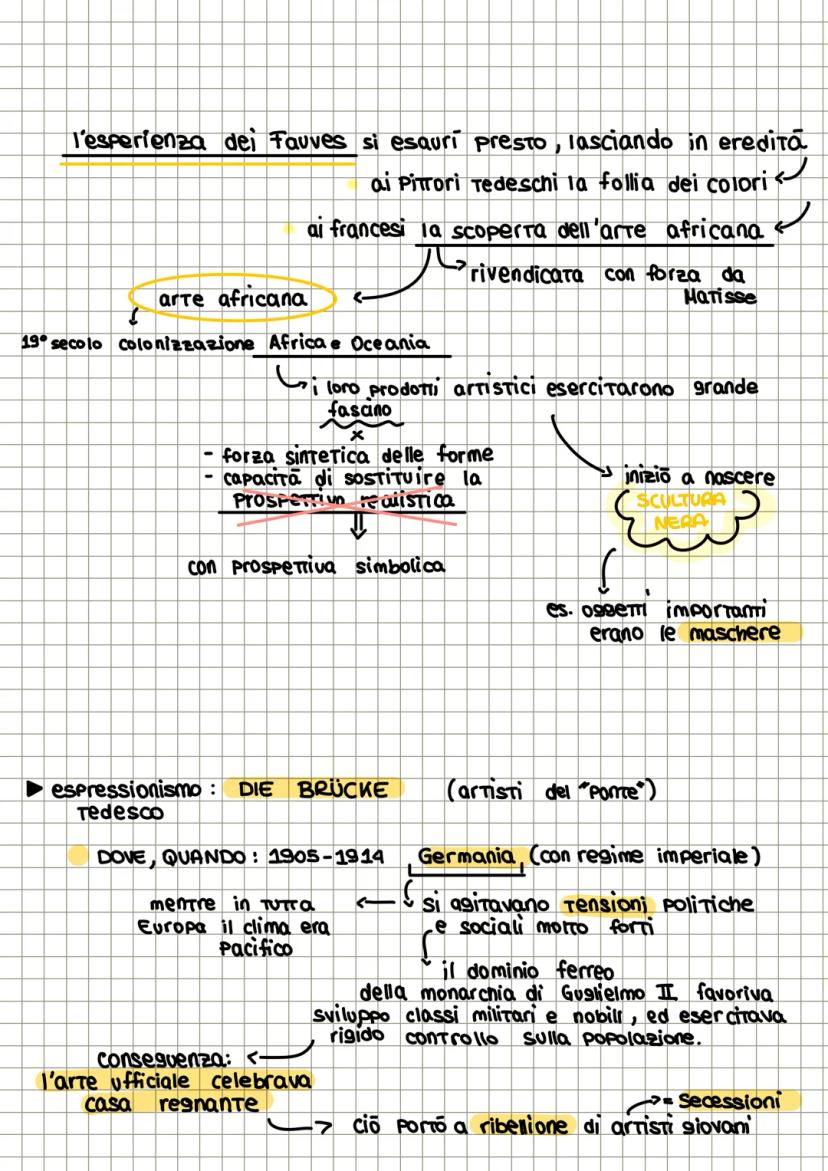 l'esperienza dei Fauves si esaurì presto, lasciando in eredità
ai pittori tedeschi la follia dei colori
ai francesi la scoperta dell'arte africana
rivendicata con forza da
Matisse
arte africana
19° secolo colonizzazione Africa e Oceania
i loro prodotti artistici esercitarono grande
fascino
x
- forza sintetica delle forme
- capacità di sostituire la
prospettiva realistica
con prospettiva simbolica
iniziò a nascere
SCULTURA
NERA
es. oggetti importanti
erano le maschere
▶ espressionismo : DIE BRÜCKE (artisti del "Ponte")
tedesco
DOVE, QUANDO : 1905-1914 Germania, (con regime imperiale)
si agitavano tensioni politiche
e sociali molto forti
mentre in tutta
Europa il clima era
pacifico
il dominio ferreo
della monarchia di Guglielmo II favoriva
sviluppo classi militari e nobili, ed esercitava
rigido controllo sulla popolazione.
conseguenza:
l'arte ufficiale celebrava
casa regnante
= Secessioni
ciò portò a ribellione di artisti giovani